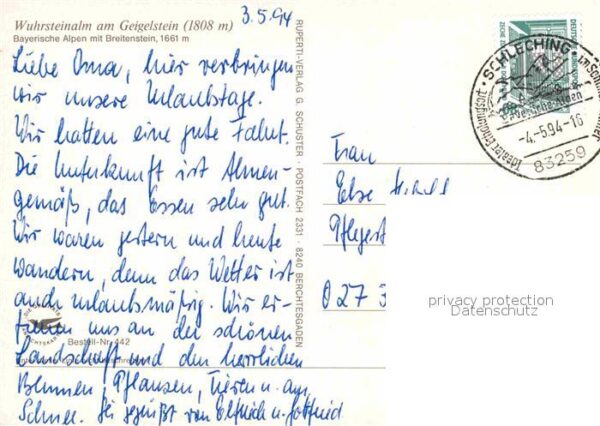 Wuhrsteinalm am Geigelstein (1808 m)
Bayerische Alpen mit Breitenstein, 1661 m
3.5.94
Liebe Oma, hier verbringen
wir unsere Urlaubstage.
Wir hatten eine gute Fahrt.
Die Unterkunft ist
gemäß, das Essen sehr gut.
Wir waren gestern und heute
wandern, denn das Wetter ist
auch urlaubsmäßig. Wir er-
freuen uns an der schönen
Landschaft und den herrlichen
Blumen, Pflanzen, Tieren u. am
Schnee. Sei gegrüßt von Elfriede u. Gottfried
Bestell-Nr. 442
RUPERTI-VERLAG G. SCHUSTER · POSTFACH 2331 · 8240 BERCHTESGADEN
Frau
Else
Pflegest
0 27 3
SCHLECHING
-4.-5.94-16
83259
privacy protection
Datenschutz